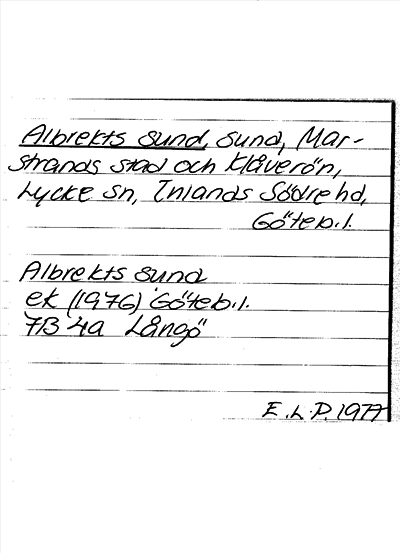 Albrekts sund, sund, Mar-
strands stad och Klåverön,
Lycke sn, Inlands Södre hd,
Göteb.l.
Albrekts sund
ek (1976) Göteb.l.
7B 4a Långö
E.L.P. 1977